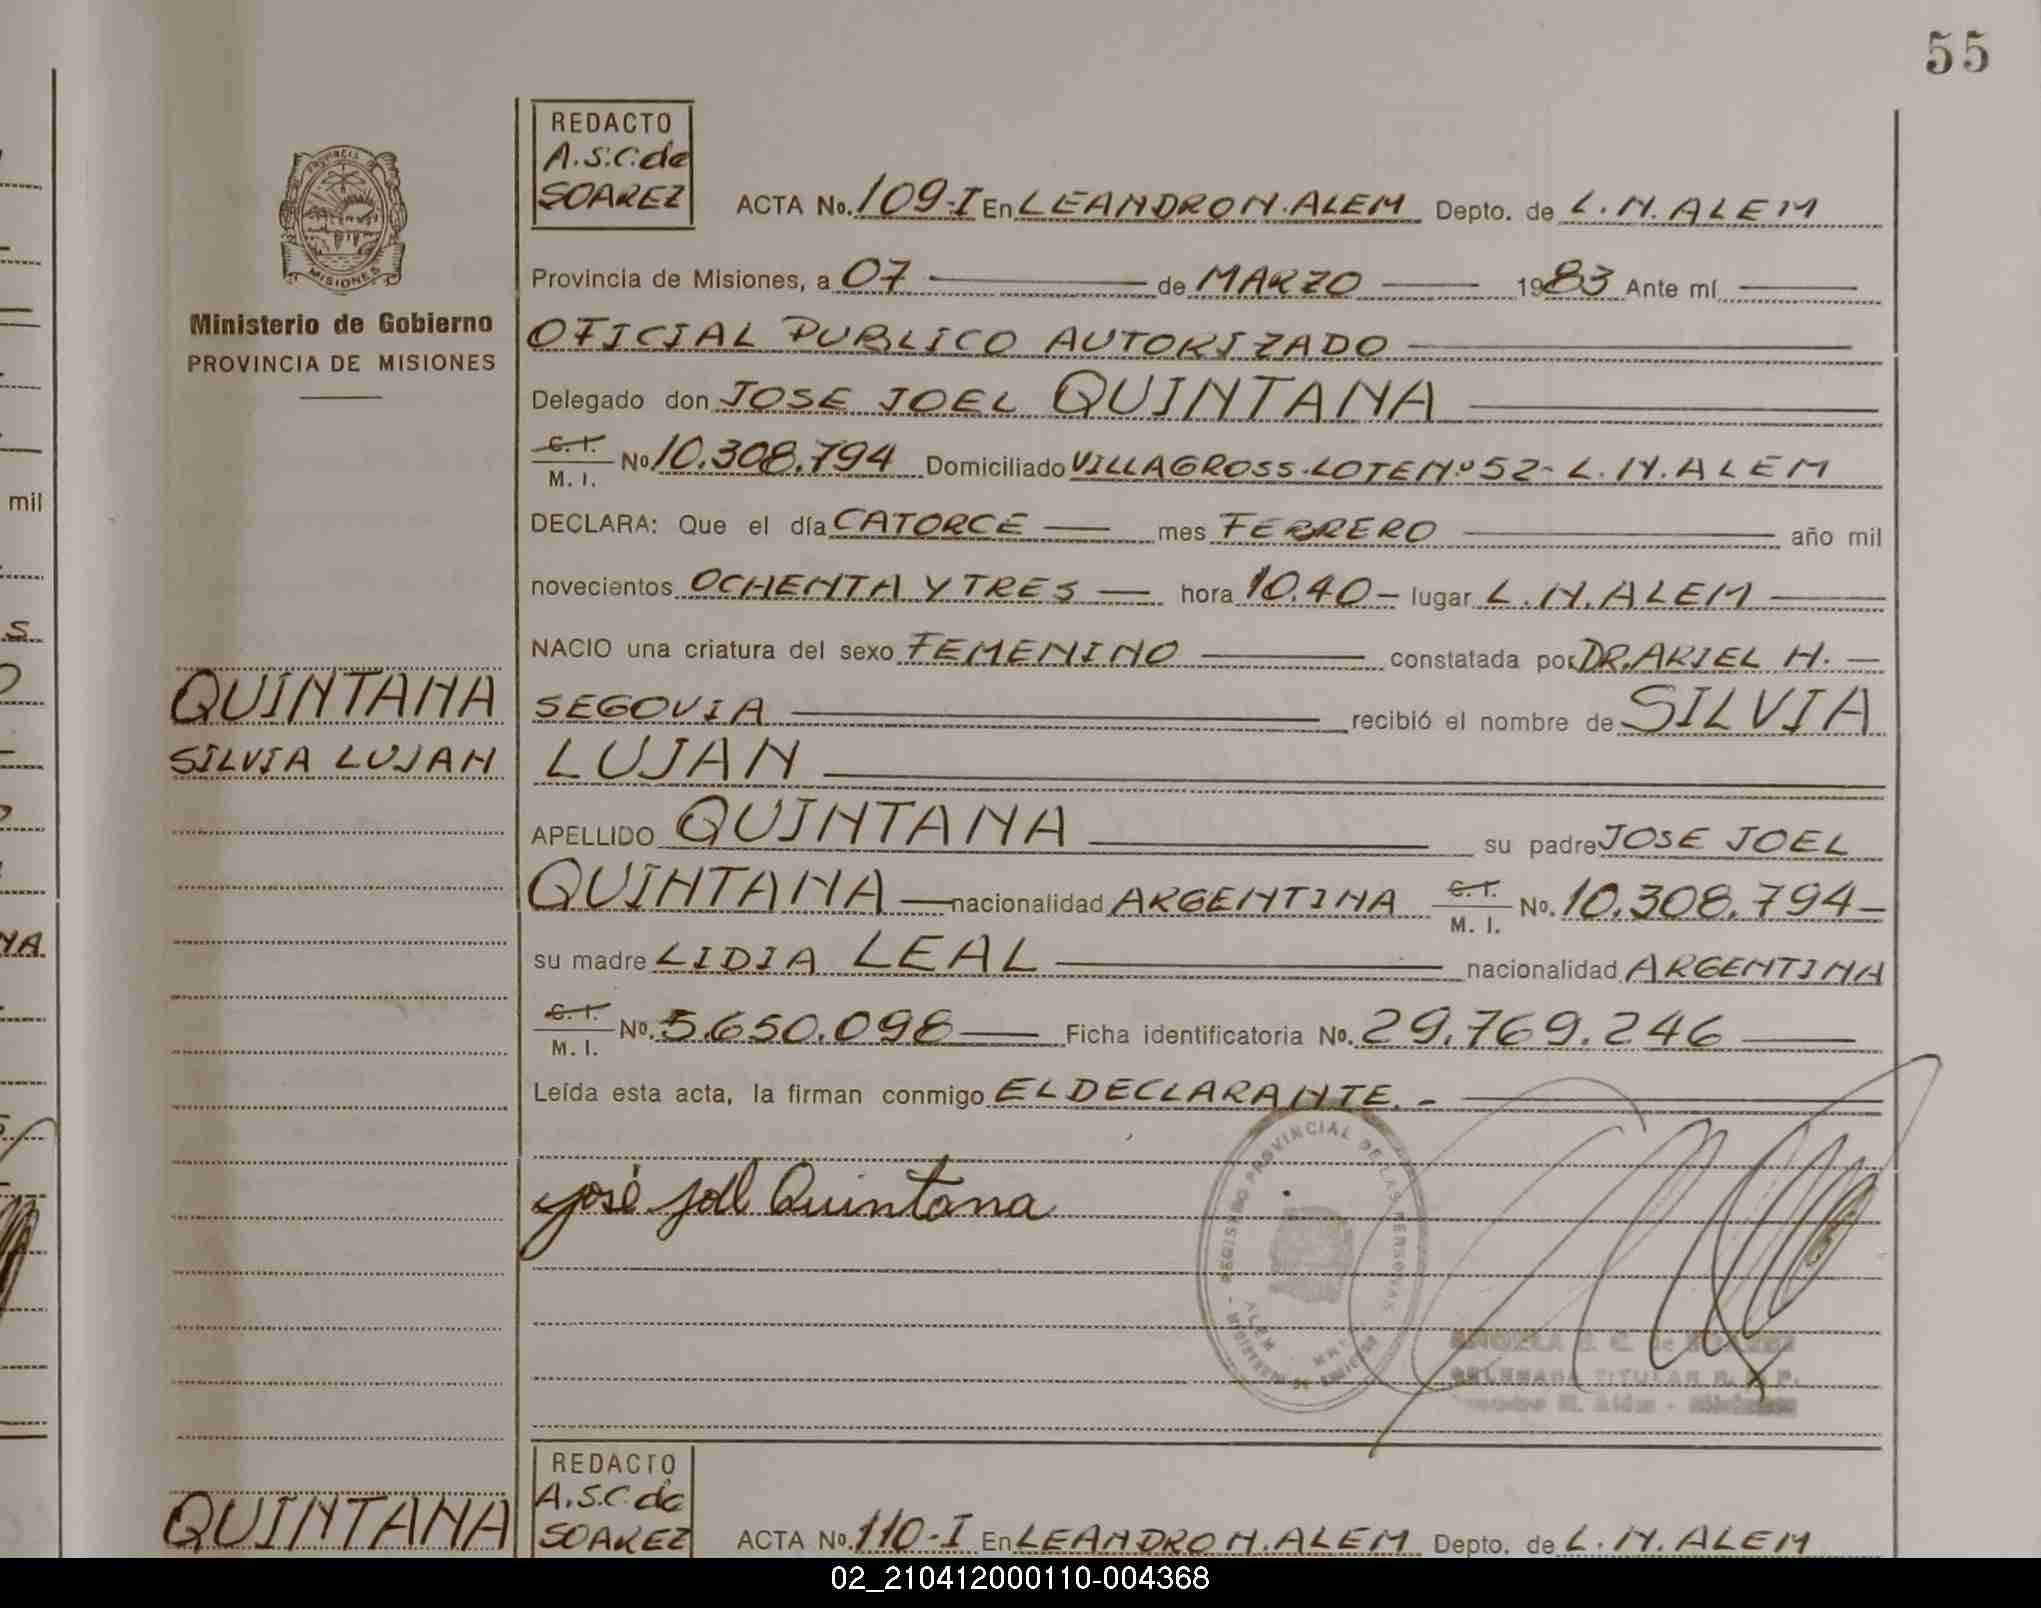 55
REDACTO
A.S.C. de
SOAREZ
ACTA No. 109-I En LEANDRO N. ALEM Depto. de L. N. ALEM
PROVINCIA
MISIONES
Ministerio de Gobierno
PROVINCIA DE MISIONES
Provincia de Misiones, a 07 de MARZO 1983 Ante mí
OFICIAL PUBLICO AUTORIZADO
Delegado don JOSE JOEL QUINTANA
C. I.
M. I. No 10.308.794 Domiciliado VILLA GROSS-LOTE Nº 52- L. N. ALEM
DECLARA: Que el día CATORCE mes FEBRERO año mil
novecientos OCHENTA Y TRES hora 10.40 lugar L. N. ALEM
NACIO una criatura del sexo FEMENINO constatada por DR. ARIEL H.
SEGOVIA recibió el nombre de SILVIA
LUJAN
QUINTANA
SILVIA LUJAN
APELLIDO QUINTANA su padre JOSE JOEL
QUINTANA nacionalidad ARGENTINA C. I. M. I. No. 10.308.794
su madre LIDIA LEAL nacionalidad ARGENTINA
C. I.
M. I. No. 5.650.098 Ficha identificatoria No. 29.769.246
Leída esta acta, la firman conmigo EL DECLARANTE.-
José Joel Quintana
REGISTRO PROVINCIAL DE LAS PERSONAS
ALEM
MINISTERIO DE GOBIERNO
DELEGADA TITULAR R. P. P.
QUINTANA
REDACTO
A.S.C. de
SOAREZ
ACTA No. 110-I En LEANDRO N. ALEM Depto. de L. N. ALEM
mil
S.
NA
02_210412000110-004368